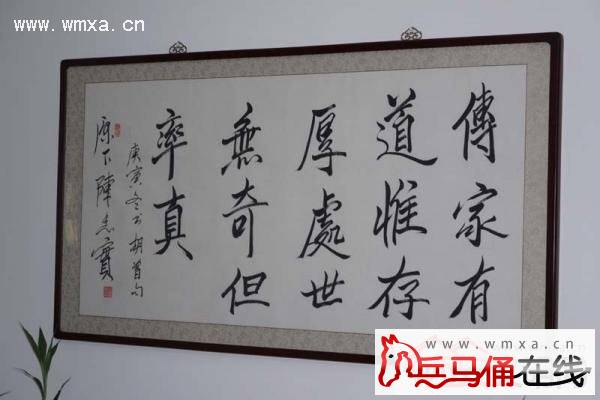 www.wmxa.cn
傳家有
道惟存
厚處世
無奇但
率真
庚寅冬書
陳志寶
www.wmxa.cn
兵马俑在线